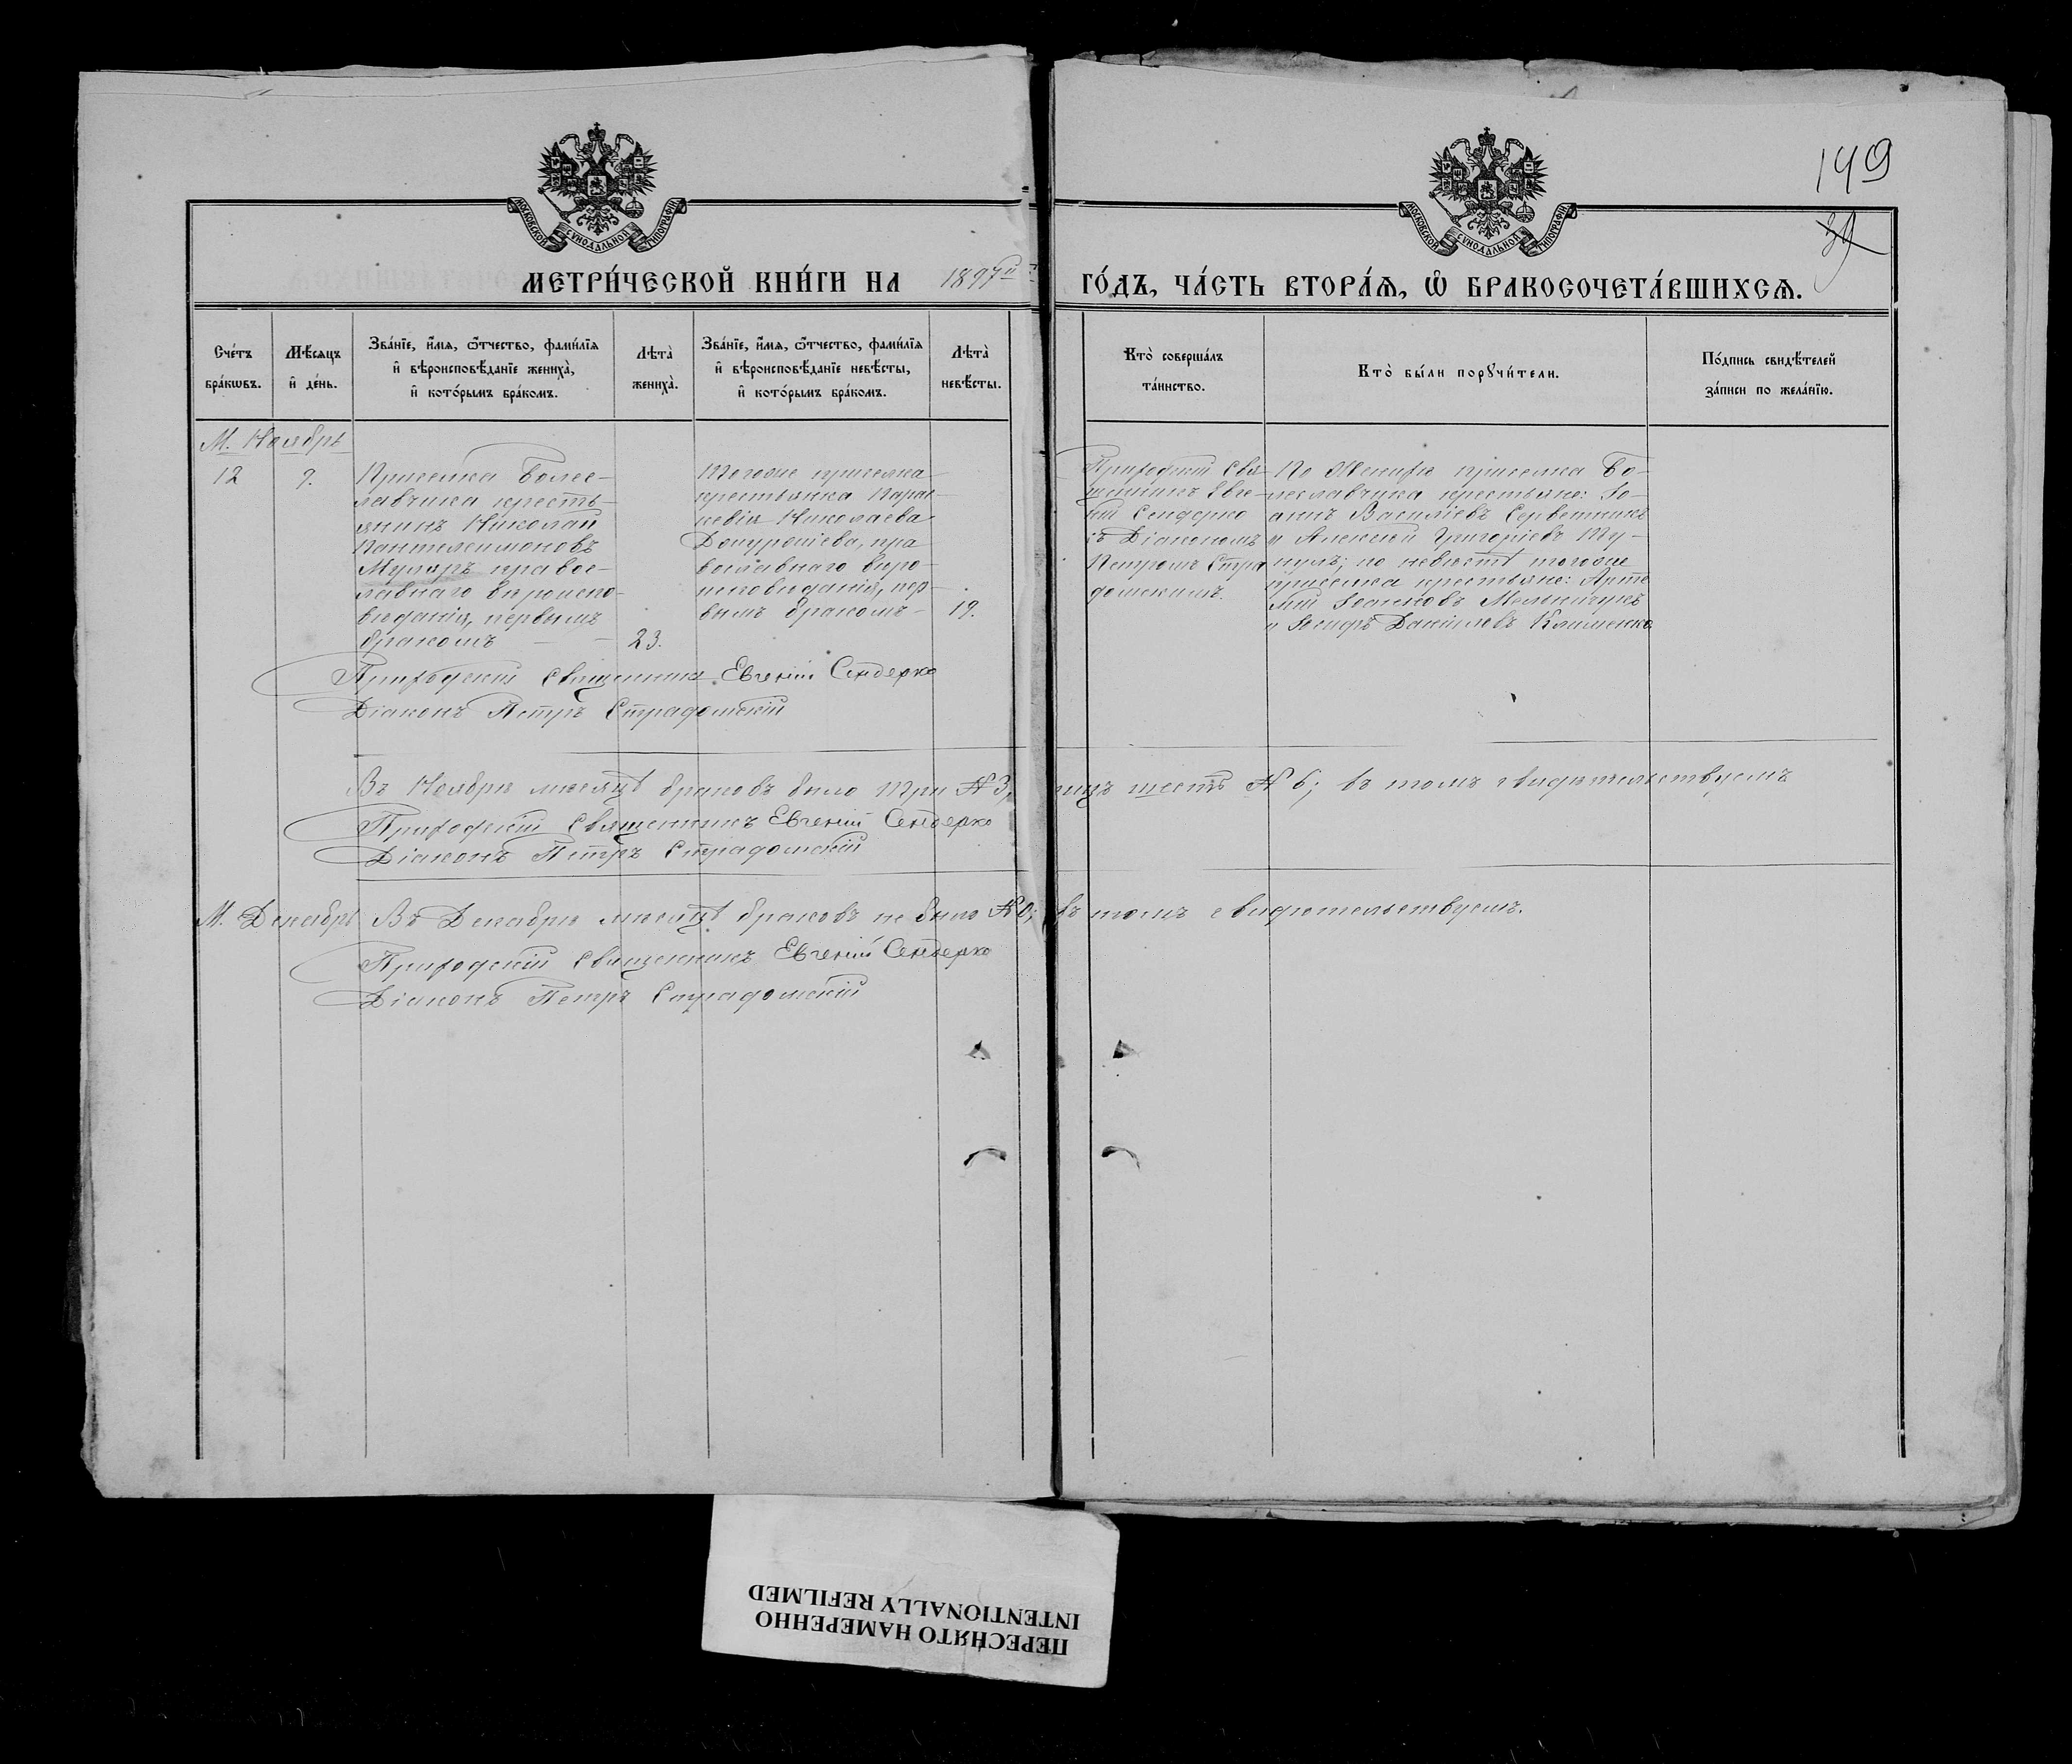 149
39
МОСКОВСКОЙ СУНОДАЛЬНОЙ ТИПОГРАФІИ
МОСКОВСКОЙ СУНОДАЛЬНОЙ ТИПОГРАФІИ
МЕТРИ́ЧЕСКОЙ КНИ́ГИ НА 1897й ГО́ДЪ, ЧА́СТЬ ВТОРА́Ѧ, Ѽ БРАКОСОЧЕТА́ВШИХСѦ.
Сче́тъ
бра́кѡвъ.
Мѣ́сѧцъ
и҆ де́нь.
Зва́нїе, и҆́мѧ, ѻ҆́тчество, фами́лїѧ
и҆ вѣроисповѣ́данїе жениха̀,
и҆ кото́рымъ бра́комъ.
Лѣта̀
жениха̀.
Зва́нїе, и҆́мѧ, ѻ҆́тчество, фами́лїѧ
и҆ вѣроисповѣ́данїе невѣ́сты,
и҆ кото́рымъ бра́комъ.
Лѣта̀
невѣ́сты.
Кто̀ соверша́лъ
та́инство.
Кто̀ бы́ли порꙋчи́тели.
По́дпись свидѣ́телей
за́писи по жела́нїю.
М. Ноябрь
12
9.
Приселка Болес-
лавчика кресть-
янинъ Николай
Пантелеимоновъ
Муляръ правос-
лавнаго вѣроиспо-
вѣданія, первымъ
бракомъ
23.
Тогоже приселка
крестьянка Парас-
кевія Николаева
пра
вославнаго вѣро-
исповѣданія, пер-
вымъ бракомъ
19.
Приходскій Свя-
щенникъ Евге-
ній Сендерко
съ Діакономъ
Петромъ Стра
домскимъ.
По Женихѣ приселка Бо-
леславчика крестьяне: Іо-
аннъ Василіевъ
и Алексѣй Григоріевъ
по невѣстѣ тогоже
приселка крестьяне: Арте
мій Мельничукъ
и Іосифъ Даніиловъ Клименко
Приходскій Священникъ Евгеній Сендерко
Діаконъ Петръ Страдомскій
Въ Ноябрѣ мѣсяцѣ браковъ было три № 3, лицъ шесть № 6; въ томъ свидѣтельствуемъ
Приходскій Священникъ Евгеній Сендерко
Діаконъ Петръ Страдомскій
М. Декабрь Въ Декабрѣ мѣсяцѣ браковъ не было № 0; въ томъ свидѣтельствуемъ.
Приходскій Священникъ Евгеній Сендерко
Діаконъ Петръ Страдомскій
ПЕРЕСНЯТО НАМЕРЕННО
INTENTIONALLY REFILMED